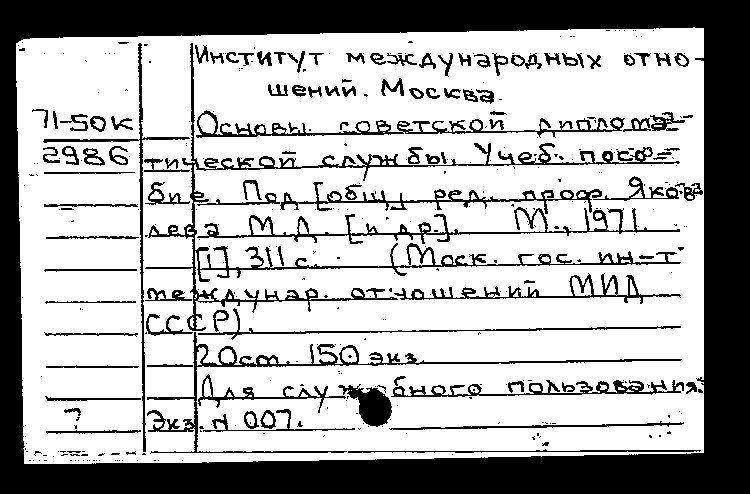 Институт международных отно-
шений. Москва.
71-50К
Основы советской диплома-
2986
тической службы. Учеб. посо-
бие. Под [общ.] ред. проф. Яков-
лева М.Д. [и др]. М., 1971.
[1], 311 с. (Моск. гос. ин-т
междунар. отношений МИД
СССР).
20 см. 150 экз.
Для служебного пользования.
? Экз. N 007.